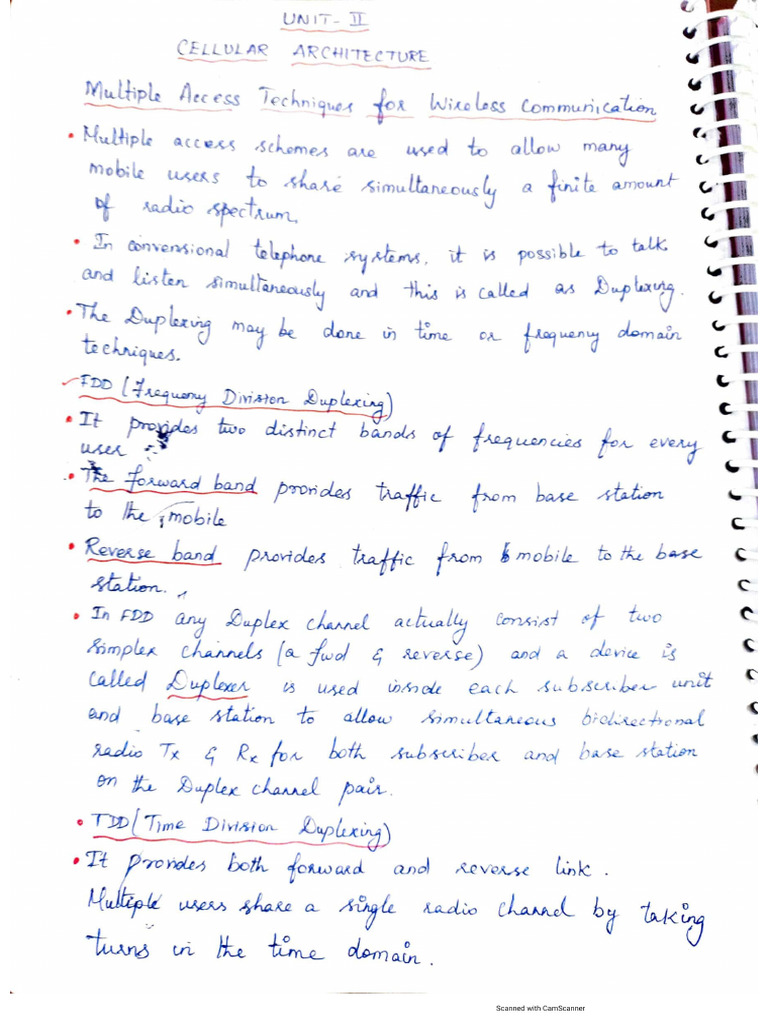 UNIT-II
CELLULAR ARCHITECTURE
Multiple Access Techniques for Wireless Communication
• Multiple access schemes are used to allow many
mobile users to share simultaneously a finite amount
of radio spectrum.
• In convensional telephone systems, it is possible to talk
and listen simultaneously and this is called as Duplexing.
• The Duplexing may be done in time or frequency domain
techniques.
FDD (Frequency Division Duplexing)
• It provides two distinct bands of frequencies for every
user
• The forward band provides traffic from base station
to the mobile
• Reverse band provides traffic from mobile to the base
station.
• In FDD any Duplex channel actually consist of two
simplex channels (a fwd & reverse) and a device is
called Duplexer is used inside each subscriber unit
and base station to allow simultaneous bidirectional
radio Tx & Rx for both subscriber and base station
on the Duplex channel pair.
• TDD (Time Division Duplexing)
• It provides both forward and reverse link.
Multiple users share a single radio channel by taking
turns in the time domain.
Scanned with CamScanner